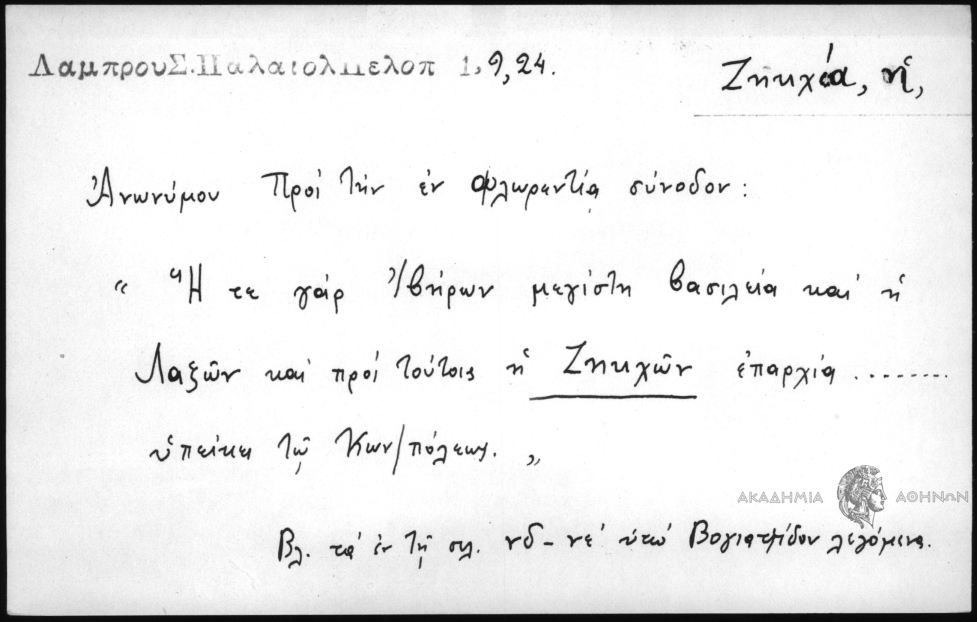 Λαμπρου Σ. Παλαιολ Πελοπ 1, 9, 24.
Ζηκχία, ἡ,
Ἀνωνύμου Πρὸς τὴν ἐν Φλωρεντίᾳ σύνοδον:
“ Ἥ τε γὰρ Ἰβήρων μεγίστη βασιλεία καὶ ἡ
Λαζῶν καὶ πρὸς τούτοις ἡ Ζηκχῶν ἐπαρχία .........
ὑπείκει τῷ Κων/πόλεως. „
ΑΚΑΔΗΜΙΑ ΑΘΗΝΩΝ
Βλ. τὰ ἐν τῇ σελ. νδ – νέ ὑπὸ Βογιατζίδου λεγόμενα.